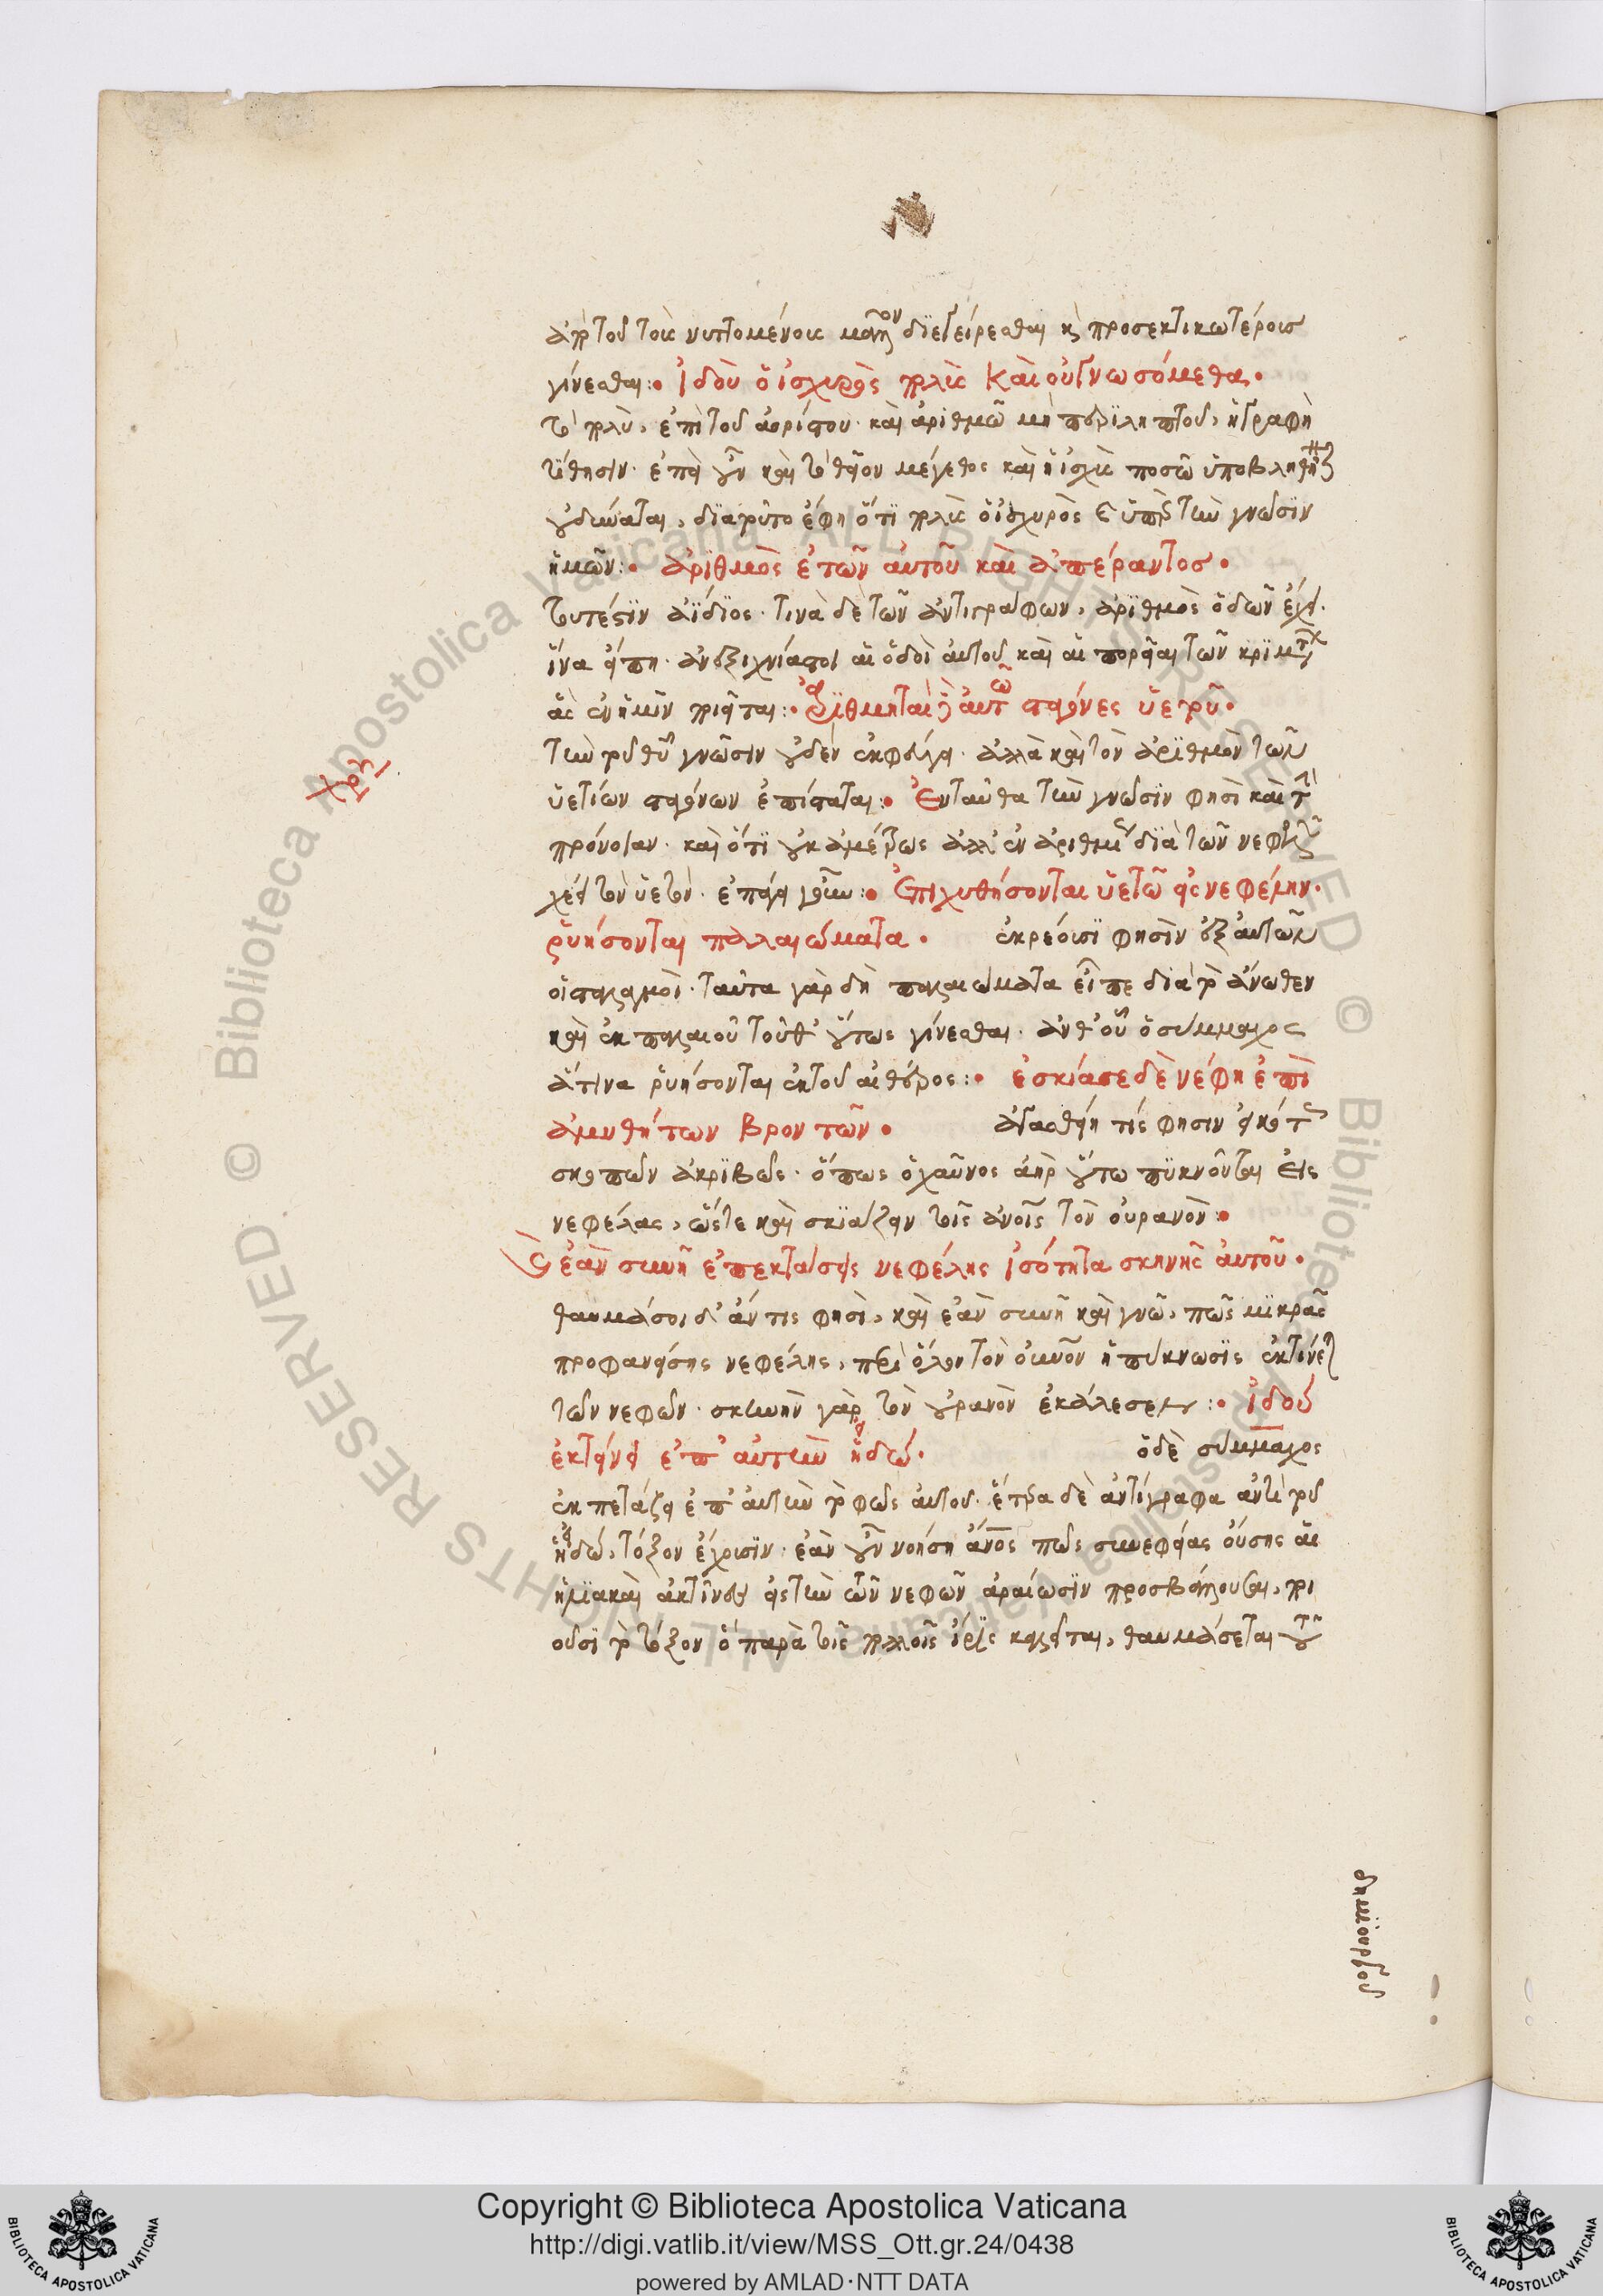 ἀπὸ τοῦ τοὺς νυττομένους μᾶλλον διεγείρεσθαι καὶ προσεκτικωτέροις
γίνεσθαι: Ἰδοὺ ὁ ἰσχυρὸς πολὺς καὶ οὐ γνωσόμεθα.
τὸ πολὺ, ἐπὶ τοῦ ἀορίστου καὶ ἀριθμῷ μὴ περιληπτοῦ, ἡ γραφὴ
τίθησιν. ἐπεὶ οὖν καὶ τὸ θεῖον μέγεθος καὶ ἡ ἰσχὺς ποσῷ ὑποβληθῆναι
οὐ δύναται, διὰ τοῦτο ἔφη ὅτι πολὺς ὁ ἰσχυρὸς καὶ ὑπὲρ τὴν γνῶσιν
ἡμῶν: ἀριθμὸς ἐτῶν αὐτοῦ καὶ ἀπέραντος.
τουτέστιν ἀΐδιος. τινὰ δὲ τῶν ἀντιγράφων, ἀριθμὸς ὁδῶν ἔχει.
ἵνα εἴπῃ. ἀνεξιχνίαστοι αἱ ὁδοὶ αὐτοῦ καὶ αἱ πορεῖαι τῶν κριμάτων
ἃς ἐν ἡμῖν ποιεῖται: ἀριθμηταὶ δὲ αὐτῷ σταγόνες ὑετοῦ.
τὴν τοῦ θεοῦ γνῶσιν οὐδὲν ἐκφεύγει. ἀλλὰ καὶ τὸν ἀριθμὸν τῶν
ὑετίων σταγόνων ἐπίσταται: Ἐνταῦθα τὴν γνῶσιν φησὶ καὶ τὴν
πρόνοιαν. καὶ ὅτι οὐκ ἀμέτρως ἀλλ' ἐν ἀριθμῷ διὰ τῶν νεφελῶν
χεῖ τὸν ὑετὸν. ἐπάγει γοῦν: Ἐπιχυθήσονται ὑετῷ εἰς νεφέλην.
ῥυήσονται παλαιώματα. ἐκρέουσι φησὶν ἐξ αὐτῶν
οἱ σταλαγμοὶ. ταῦτα γὰρ δὴ παλαιώματα εἶπε διὰ τὸ ἄνωθεν
καὶ ἐκ παλαιοῦ τοῦθ' οὕτως γίνεσθαι. ἀνθ' οὗ ὁ σύμμαχος
ἅτινα ῥυήσονται ἐκ τοῦ αἰθέρος: ἐσκίασε δὲ νέφη ἐπὶ
ἀμυθήτων βροντῶν.
σκοπῶν ἀκριβῶς. ὅπως ὁ χαῦνος ἀὴρ οὕτω πυκνοῦται εἰς
νεφέλας, ὥστε καὶ σκιάζειν τοῖς ἀνοις τὸν οὐρανὸν:
καὶ ἐὰν συνῇ ἐπεκτάσεις νεφέλης ἰσότητα σκηνῆς αὐτοῦ.
θαυμάσοι δ' ἄν τις φησὶ, καὶ ἐὰν συνῇ καὶ γνῷ, πῶς μικρᾶς
προφανείσης νεφέλης, περὶ ὅλον τὸν οὐνὸν ἡ πύκνωσις ἐκτίνεται
τῶν νεφῶν. σκηνὴν γὰρ τὸν οὐρανὸν ἐκάλεσεν: ἰδοὺ
ἐκτείνει ἐπ' αὐτὴν ἡδώ. ὁ δὲ σύμμαχος
ἐκπετάζει ἐπ' αὐτὴν τὸ φῶς αὐτοῦ. ἕτερα δὲ ἀντίγραφα ἀντὶ τοῦ
ἡδώ, τόξον ἔχουσιν. ἐὰν οὖν νοήσῃ ἄνος πῶς συνεφείας οὔσης αἱ
ἡλιακαὶ ἀκτῖνες εἰς τὴν τῶν νεφῶν ἀραίωσιν προσβάλουσαι, ποι
οῦσι τὸ τόξον ὃ παρὰ τοῖς πολλοῖς ἶρις καλεῖται, θαυμάσεται τοῦ
δημιουργοῦ
Copyright © Biblioteca Apostolica Vaticana
http://digi.vatlib.it/view/MSS_Ott.gr.24/0438
powered by AMLAD·NTT DATA
BIBLIOTECA APOSTOLICA VATICANA
BIBLIOTECA APOSTOLICA VATICANA